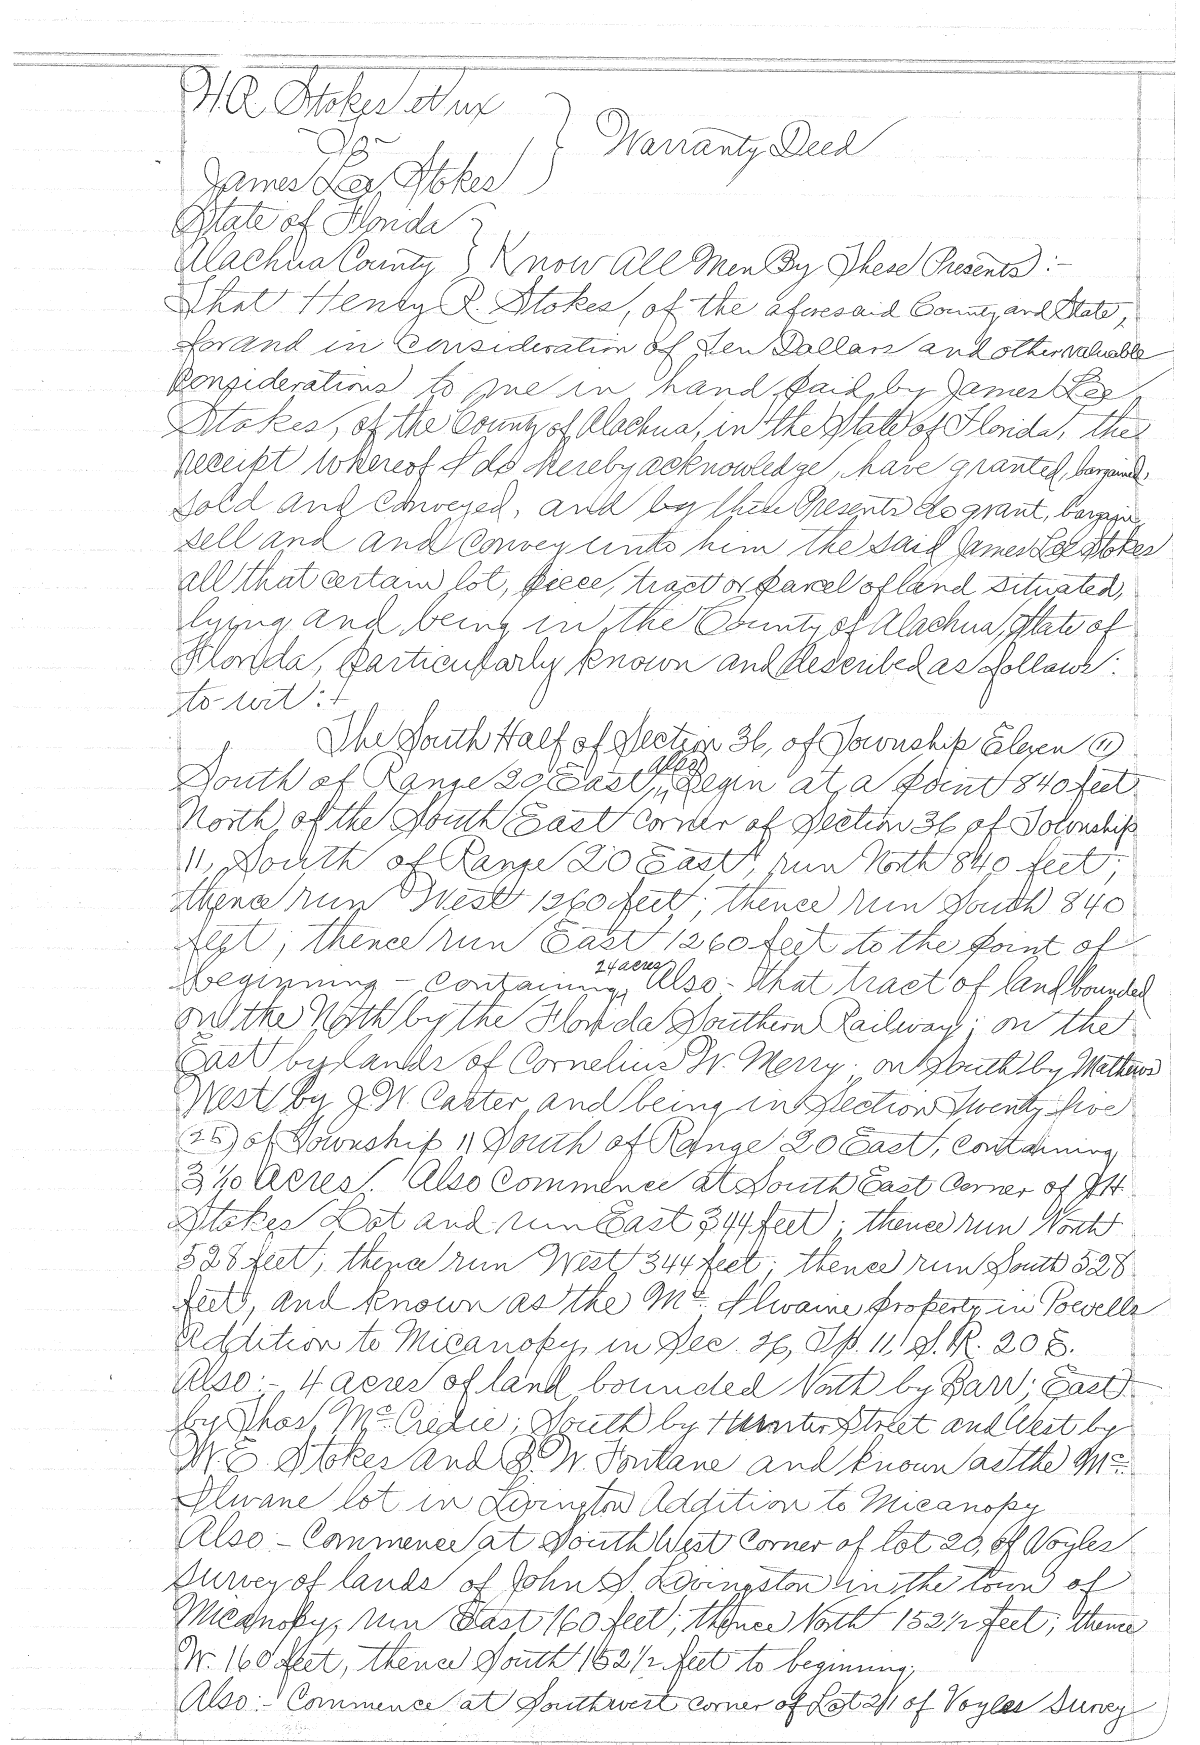 H R Stokes et ux
To } Warranty Deed
James Lee Stokes
State of Florida
Alachua County } Know All Men By These Presents:-
That Henry R. Stokes, of the aforesaid County and State,
for and in consideration of Ten Dollars and other valuable
Considerations to me in hand paid by James Lee
Stokes, of the County of Alachua, in the State of Florida, the
receipt whereof I do hereby acknowledge, have granted, bargained,
sold and conveyed, and by these Presents do grant, bargain,
sell and and convey unto him the said James Lee Stokes
all that certain lot, piece, tract or parcel of land situated,
lying and being in the County of Alachua, State of
Florida, particularly known and described as follows:
to-wit:-
The South Half of Section 36, of Township Eleven (11)
South of Range 20 East, Also, Begin at a point 840 feet
North of the South East corner of Section 36 of Township
11, South of Range 20 East, run North 840 feet;
thence run West 1260 feet; thence run South 840
feet; thence run East 1260 feet to the point of
beginning - containing 24 acres, Also:- that tract of land bounded
on the North by the Florida Southern Railway; on the
East by lands of Cornelius W. Merry; on South by Mathews
West by J. W. Carter, and being in Section Twenty five
(25) of Township 11 South of Range 20 East, containing
3 1/10 Acres. Also commence at South East Corner of J H
Stokes Lot and run East 344 feet; thence run North
528 feet; thence run West 344 feet; thence run South 528
feet, and known as the Mc Ilwaine property in Powells
Addition to Micanopy, in Sec. 26, Tp. 11, S. R. 20 E.
Also:- 4 acres of land bounded North by Barr; East
by Thos. Mc Credie; South by Hunter Street and West by
W. E. Stokes and B. W. Fontane and known as the Mc
Ilwane lot in Livington Addition to Micanopy
Also - Commence at South West Corner of lot 20, of Voyles
survey of lands of John S. Livingston in the town of
Micanopy, run East 160 feet; thence North 152 1/2 feet; thence
W. 160 feet, thence South 152 1/2 feet to beginning;
Also:- Commence at Southwest corner of Lot 21 of Voyles Survey